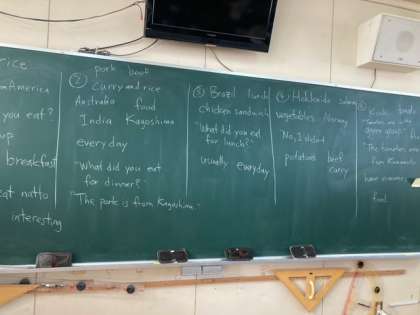 rice
America
you eat?
up
breakfast
eat natto
interesting
pork beef
② Curry and rice
Australia food
India Kagoshima
everyday
"What did you eat
for dinner?"
"The pork is from Kagoshima."
③ Brazil lunch
chicken sandwich
"What did you eat
for lunch?"
usually everyday
④ Hokkaido salmon
vegetables Norway
No, I didn't
potatoes beef
curry
green group."
"The tomatoes are
from Kumamoto
food